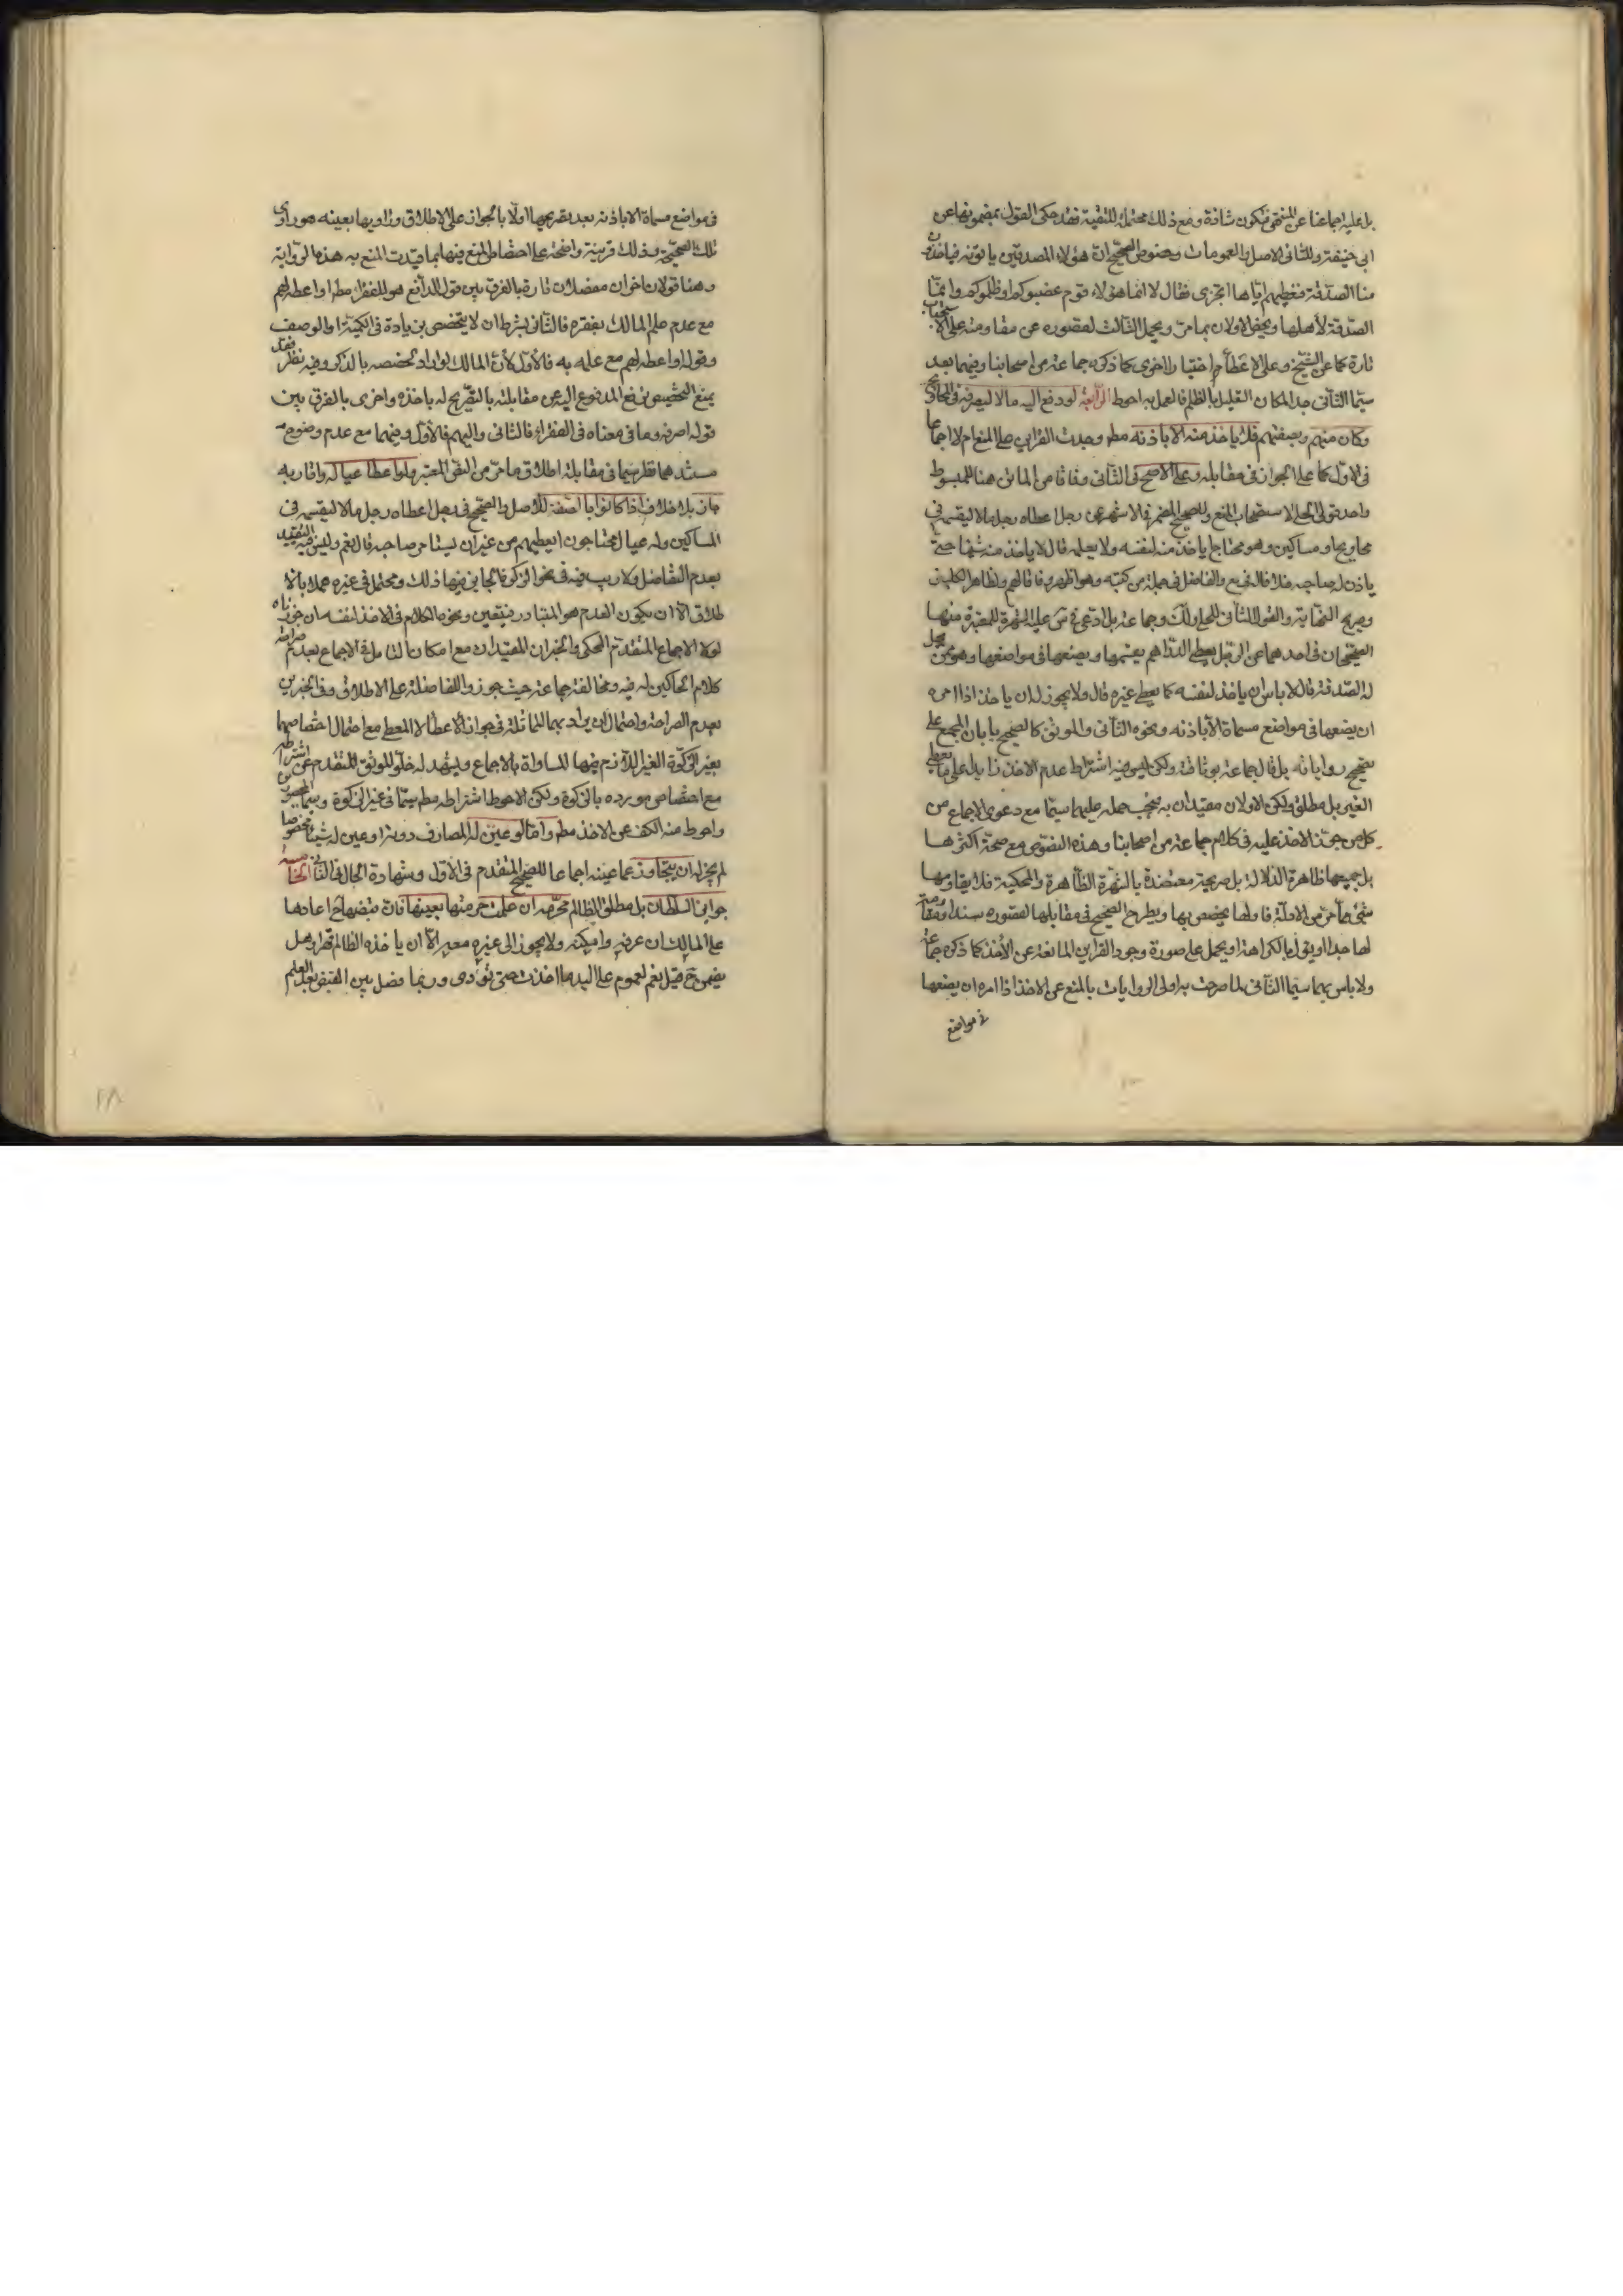 بل عليه اجماعنا عن المنتهى فتكون شاذة ومع ذلك محتملة للتقية فقد حكى القول بمضمونها عن
ابى حنيفة وللثانى الاصل والعمومات وخصوص الصحيح ان هؤلاء المصدقين ياتونه فياخذون
منا الصدقة فنعطيهم اياها اتجزى فقال لا انما هؤلاء قوم غصبوكم او ظلموكم وانما
الصدقة لأهلها ويخص الاولان بما مر ويحمل الثالث لقصوره عن مقاومته على الاستحباب
تارة كما عن الشيخ وعلى الاعطاء اختيارا اخرى كما ذكره جماعة من اصحابنا وفيهما بعد
سيما الثانى جدا لمكان التعليل بالظلم فالعمل به احوط الرابعة لو دفع اليه مالا ليصرفه فى المحاويج
وكان منهم وبصفتهم فلا ياخذ منه الا باذنه مط وجدت القراين على المنع ام لا اجماعا
فى الاول كما على الجواز فى مقابله وعلى الاصح فى الثانى وفاقا من الماتن هنا للمبسوط
واحد قولى الحلى لاستصحاب المنع وللصحيح المضمر فى الاشهر عن رجل اعطاه رجل مالا ليقسمه فى
محاويج او مساكين وهو محتاج اياخذ منه لنفسه ولا يعلمه قال لا ياخذ منه شيئا حتى
ياذن له صاحبه خلافا له فى يع والفاضل فى جملة من كتبه وهو اظهر وفاقا لهم ولظاهر الكلينى
وصريح النهاية والقول الثانى للحلى ولك وجماعة بل ادعى فى س عليه الشهرة للمعتبرة منها
الصحيحان فى احدهما عن الرجل يعطى الدراهم يقسمها ويضعها فى مواضعها وهو ممن يحل
له الصدقة قال لا باس ان ياخذ لنفسه كما يعطى غيره قال ولا يجوز له ان ياخذ اذا امره
ان يضعها فى مواضع مسماة الا باذنه ونحوه الثانى والموثق كالصحيح بابان المجمع على
تصحيح رواياته بل قال جماعة بوثاقته ولكن ليس فيه اشتراط عدم الاخذ زايدا على ما يعطى
الغير بل مطلق ولكن الاولان مقيدان به فيجب حمله عليهما سيما مع دعوى الاجماع من
كل من جوز الاخذ عليه فى كلام جماعة من اصحابنا وهذه النصوص مع صحة اكثرها
بل جميعها ظاهرة الدلالة بل صريحة معتضدة بالشهرة الظاهرة والمحكية فلا يقاومها
شئ مما مر من الادلة فاولها يخصص بها ويطرح الصحيح فى مقابلها لقصوره سندا ومقاومة
لها جدا او يؤل بالكراهة او يحمل على صورة وجود القراين المانعة عن الأخذ كما ذكره جماعة
ولا باس بهما سيما الثانى لما صرحت به اولى الروايات بالمنع عن الاخذ اذا امره ان يضعها
فى مواضع
فى مواضع مسماة الا باذنه بعد تصريحها اولا بالجواز على الاطلاق وراويها بعينه هو راوى
تلك الصحيحة وذلك قرينة واضحة على اختصاص المنع فيها بما قيدت المنع به هذه الرواية
وهنا قولان اخران مفصلان تارة بالفرق بين قول الدافع هو للفقراء مط او اعطه لهم
مع عدم علم المالك بفقره فالثانى بشرط ان لا يتخصص بزيادة فى الكمية او الوصف
وقوله او اعطه لهم مع علمه به فالأول لأن المالك لو اراد لخصصه بالذكر وفيه نظر فقد
يمنع التخصيص رفع المدفوع اليه عن مقابلته بالتصريح له باخذه واخرى بالفرق بين
قوله اصرفه وما فى معناه فى الفقراء فالثانى واليهم فالأول وفيهما مع عدم وضوح
مستندهما نظر سيما فى مقابلة اطلاق ما مر من النص المعتبر ولو اعطا عياله واقاربه
جاز بلا خلاف اذا كانوا بالصفة للاصل والصحيح فى رجل اعطاه رجل مالا ليقسمه فى
المساكين وله عيال محتاجون ايعطيهم من غير ان يستامر صاحبه قال نعم وليس فيه التقييد
بعدم التفاضل ولا ريب فيه فى نحو الزكوة الجايز فيها ذلك ومحتمل فى غيره عملا بالا
طلاق الا ان يكون العدم هو المتبادر فيتعين ونحوه الكلام فى الاخذ لنفسه ان جوزناه
لولا الاجماع المتقدم المحكى والخبران المقيدان مع امكان التامل فى الاجماع بعدم صراحة
كلام الحاكين له فيه ومخالفة جماعة حيث جوزوا المفاضلة على الاطلاق وفى الخبرين
بعدم الصراحة واحتمال ان يراد بهما المماثلة فى جواز الاعطاء لا المعطى مع احتمال اختصاصهما
بغير الزكوة الغير اللازم فيها المساواة بالاجماع ويشهد له خلو الموثق المتقدم عن اشتراطه
مع اختصاص مورده بالزكوة ولكن الاحوط اشتراطه مط سيما فى غير الزكوة وسيما المحصورين
واحوط منه الكف عن الاخذ مط واما لو عين له المصارف دونه او عين له شيئا مخصوصا
لم يجز له ان يتجاوز عما عينه اجماعا للصحيح المتقدم فى الأول وشهادة الحال فى الثانى الخامسة
جوايز السلطان بل مطلق الظالم محرمة ان علمت حرمتها بعينها فان قبضها ح اعادها
على المالك ان عرفه وامكنه ولا يجوز الى غيره معه الا ان ياخذه الظالم قهرا وهل
يضمن ح قيل نعم لعموم على اليد ما اخذت حتى تؤدى وربما فصل بين القبض بعد العلم